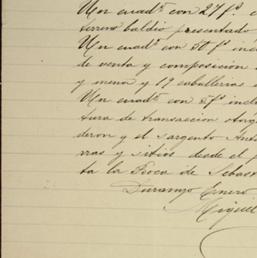 Un cuadº con 27 fˢ. c
terreno baldio presentado
Un cuadº con 50 fˢ incl
de venta y composicion
y menor y 19 caballerias
Un cuadº con 5 fˢ incl
tura de transaccion otorg
deron y el Sargento Ant
ras y sitios desde el p
ta la Boca de Sebast
Durango Enero
Miguel